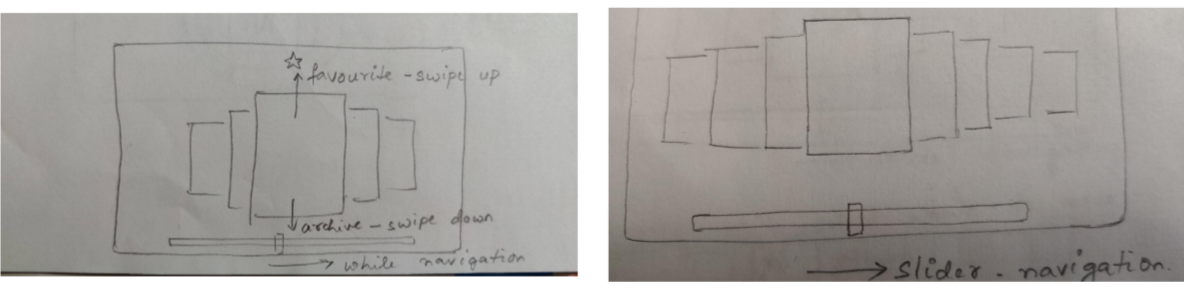 favourite - swipe up
archive - swipe down
while navigation
slider - navigation.